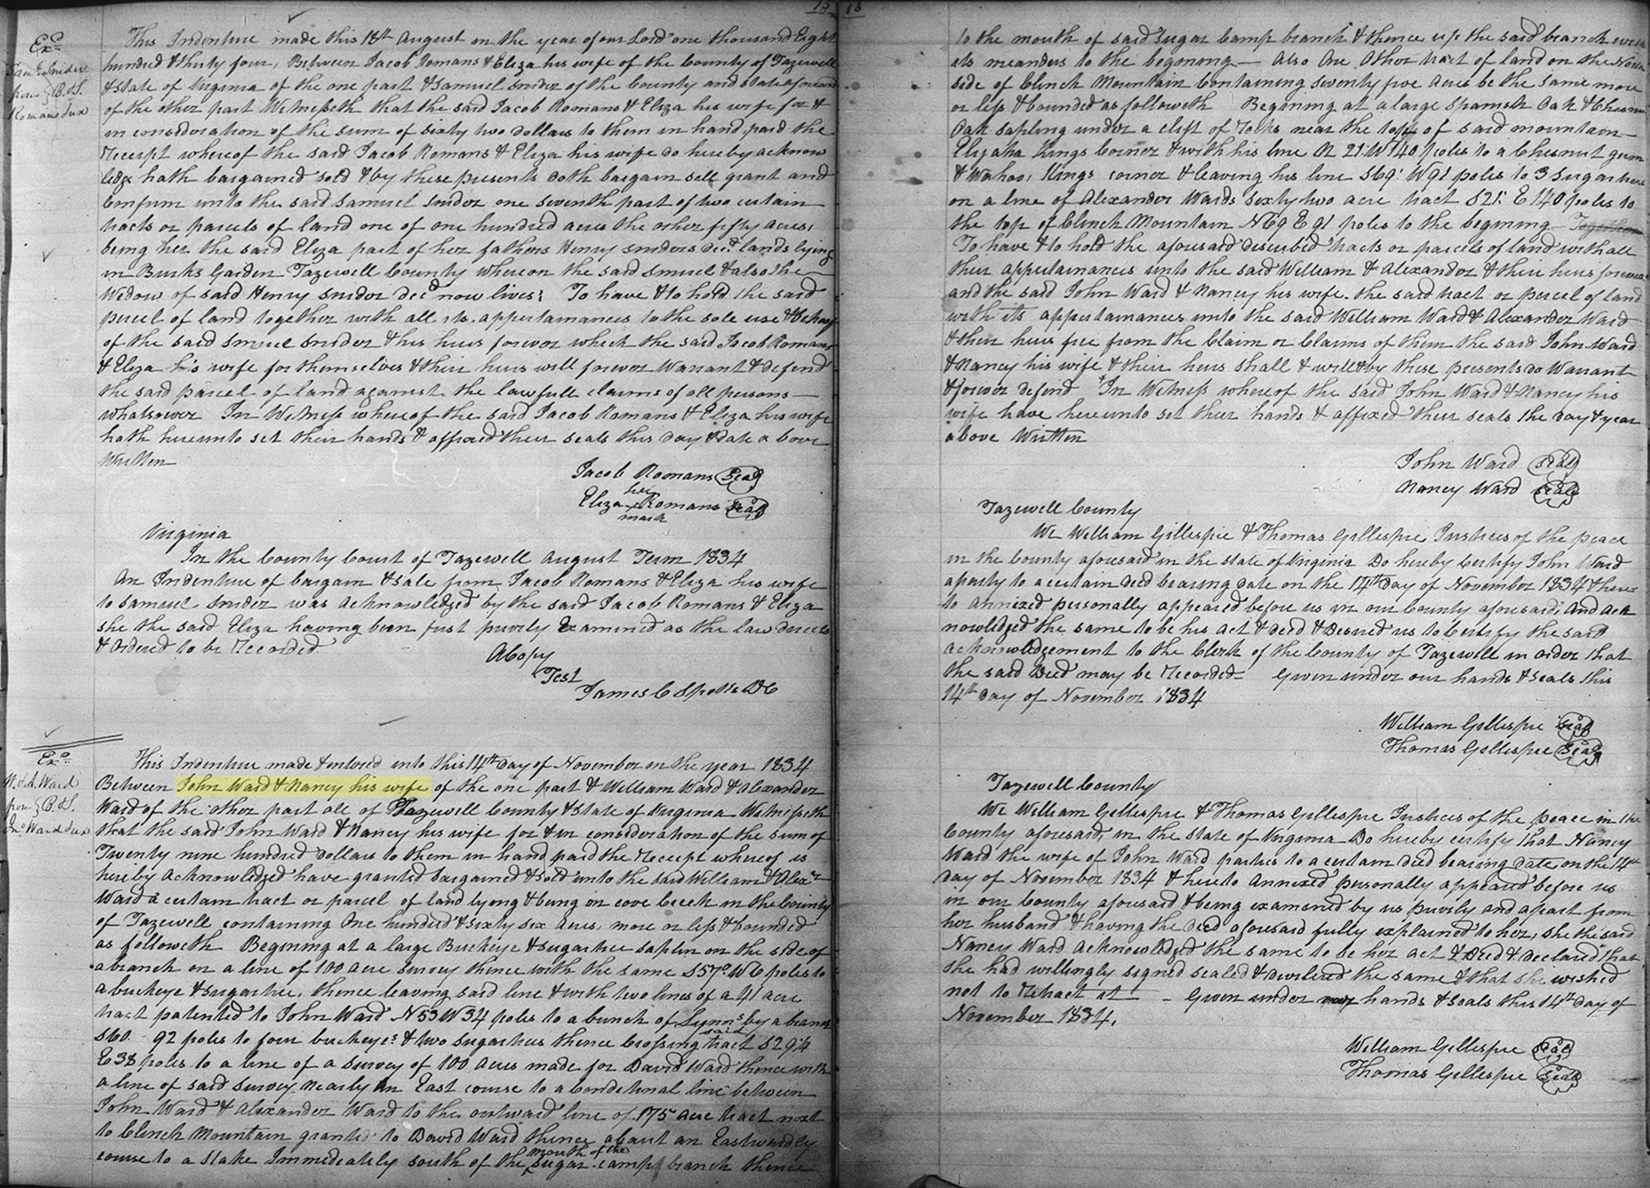 15
Exd
Saml Snider
from } B & S.
Romans & ux
This Indenture made this 18th August in the year of our Lord one thousand Eight
hundred & thirty four, Between Jacob Romans & Eliza his wife of the County of Tazewell
& State of Virginia of the one part & Samuel Snider of the County and State aforesaid
of the other part Witnesseth that the said Jacob Romans & Eliza his wife for &
in consideration of the sum of sixty two dollars to them in hand paid the
receipt whereof the said Jacob Romans & Eliza his wife do hereby acknow
ledge hath bargained sold & by these presents doth bargain sell grant and
confirm unto the said Samuel Snider one seventh part of two certain
tracts or parcels of land one of one hundred acres the other fifty acres,
being her the said Eliza part of her fathers Henry Sniders decd lands lying
in Burks Garden Tazewell County whereon the said Smuel & also the
Widow of said Henry Snider decd now lives; To have & to hold the said
parcel of land together with all its appertainances to the sole use & behoof
of the said Smuel Snider & his heirs forever which the said Jacob Romans
& Eliza his wife for themselves & their heirs will forever Warrant & defend
the said parcel of land against the lawfull claims of all persons
whatsoever In Witness whereof the said Jacob Romans & Eliza his wife
hath hereunto set their hands & affixed their seals this day & date above
Written
Jacob Romans Seal
her
Eliza Romans Seal
mark
Virginia
In the County Court of Tazewell August Term 1834
An Indenture of bargain & sale from Jacob Romans & Eliza his wife
to Samuel Snider was acknowledged by the said Jacob Romans & Eliza
she the said Eliza having been first privily Examined as the law directs
& ordered to be recorded
A Copy
Test
James C Spotts DC
Exd
W. & A. Ward
from } B. & S.
Jno Ward & ux
This Indenture made & entered into this 14th day of November in the year 1834
Between John Ward & Nancy his wife of the one part & William Ward & Alexander
Ward of the other part all of Tazewell County & State of Virginia Witnesseth
that the said John Ward & Nancy his wife for & in consideration of the sum of
Twenty nine hundred dollars to them in hand paid the receipt whereof is
hereby acknowledged have granted bargained & sold unto the said William & Alexr
Ward a certain tract or parcel of land lying & being on cove Creek in the County
of Tazewell containing One hundred & sixty six acres, more or less & bounded
as followeth Begining at a large Buckeye & sugartree saplin on the side of
a branch on a line of 100 acre survey thence with the same S57° W6 poles to
a buckeye & sugartree, thence leaving said line & with two lines of a 41 acre
tract patented to John Ward N53 W34 poles to a bunch of Lynns by a branch
S60 92 poles to four buckeyes & two sugartrees thence crossing said tract S29¼
E38 poles to a line of a survey of 100 acres made for David Ward thence with
a line of said survey nearly an East course to a conditional line between
John Ward & Alexander Ward to the outward line of 175 acre tract next
to Clinch Mountain granted to David Ward thence about an Eastwardly
course to a Stake Immediately south of the mouth of the Sugar camp branch thence
16
to the mouth of said Sugar Camp branch & thence up the said branch with
its meanders to the begining — Also One Other tract of land on the North
side of Clinch Mountain Containing seventy five acres be the same more
or less & bounded as followeth Begining at a large Spanish Oak & Chesnut
Oak sapling under a clift of rocks near the top of said mountain
Elijaha Kings Corner & with his line N 21 W140 poles to a Chesnut gum
& Wahoo, Kings corner & leaving his line S69 W91 poles to 3 Sugartrees
on a line of Alexander Wards sixty two acre tract S21 E140 poles to
the top of Clinch Mountain N69 E91 poles to the begining
To have & to hold the aforesaid described tracts or parcels of land with all
their appertainances unto the said William & Alexander & their heirs forever
and the said John Ward & Nancy his wife. the said tract or parcel of land
with its appertainances unto the said William Ward & Alexander Ward
& their heirs free from the Claim or Claims of them the said John Ward
& Nancy his wife & their heirs shall & will & by these presents do Warrant
& forever defend In Witness whereof the said John Ward & Nancy his
wife have hereunto set their hands & affixed their seals the day & year
above Written
John Ward Seal
Nancy Ward Seal
Tazewell County
We William Gillespie & Thomas Gillespie Justices of the peace
in the County aforesaid in the state of Virginia Do hereby certify John Ward
a party to a certain deed bearing date on the 14th day of November 1834 & here
to annexed personally appeared before us in our County aforesaid, And ack
nowledged the same to be his act & deed & desired us to Certify the said
acknowledgement to the Clerk of the County of Tazewell in order that
the said Deed may be recorded — Given under our hands & seals this
14th day of November 1834
William Gillespie Seal
Thomas Gillespie Seal
Tazewell County
We William Gillespie & Thomas Gillespie Justices of the peace in the
County aforesaid, in the state of Virginia Do hereby certify that Nancy
Ward the wife of John Ward parties to a certain deed bearing date on the 14th
day of November 1834 & hereto annexed personally appeared before us
in our County aforesaid & being examined by us privily and apart from
her husband & having the deed aforesaid fully explained to her, she the said
Nancy Ward acknowledged the same to be her act & Deed & declared that
she had willingly signed sealed & delivered the same & that she wished
not to retract it — Given under our hands & seals this 14th day of
November 1834.
William Gillespie Seal
Thomas Gillespie Seal